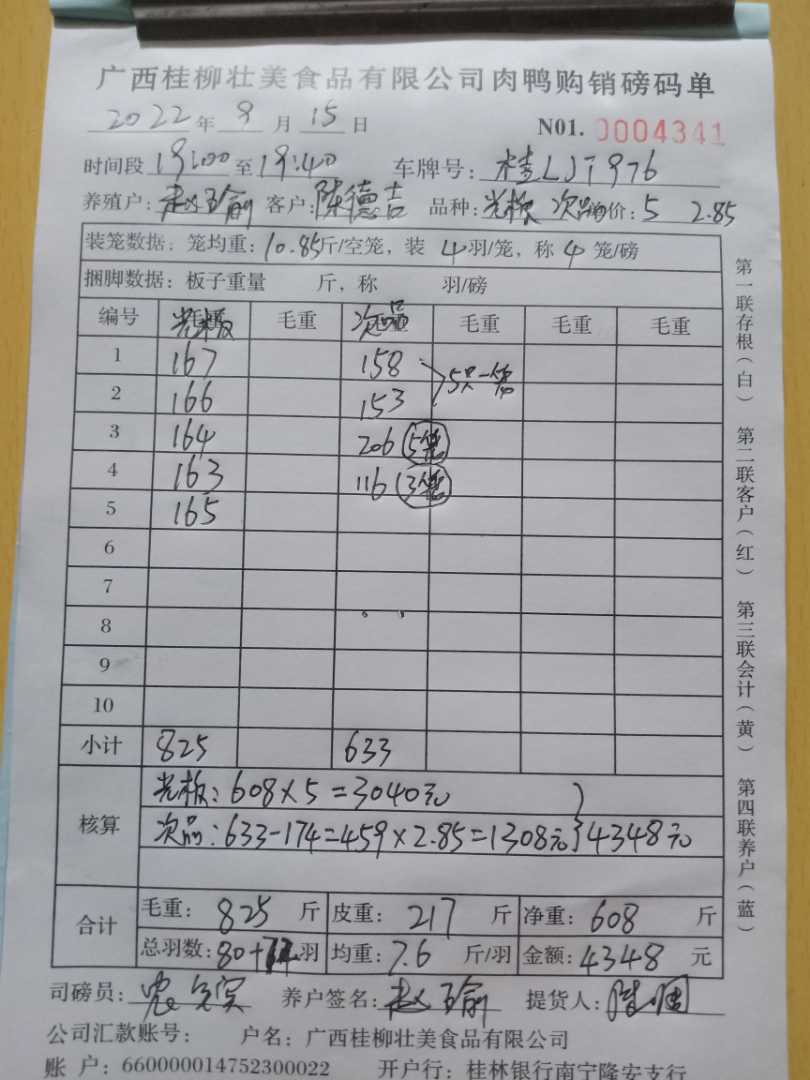 广西桂柳壮美食品有限公司肉鸭购销磅码单
2022年 9月 15日 N01. 0004341
时间段 19:00 至 19:40 车牌号: 桂LJT976
养殖户: 赵瑜 客户: 陈德吉 品种: 光板 次品 价: 5 2.85
装笼数据: 笼均重: 10.85斤/空笼, 装 4羽/笼, 称 4 笼/磅
捆脚数据: 板子重量 斤, 称 羽/磅
编号 光板 毛重 次品 毛重 毛重 毛重
1 167 158
5只一笼
2 166 153
3 164 206 (5笼)
4 163 116 (3笼)
5 165
6
7
8
9
10
小计 825 633
核算
光板: 608×5=3040元
次品: 633-174=459×2.85=1308元 } 4348元
合计
毛重: 825 斤 皮重: 217 斤 净重: 608 斤
总羽数: 80+ 羽 均重: 7.6 斤/羽 金额: 4348 元
司磅员: 养户签名: 赵瑜 提货人:
公司汇款账号: 户名: 广西桂柳壮美食品有限公司
账 户: 660000014752300022 开户行: 桂林银行南宁隆安支行
第一联存根(白) 第二联客户(红) 第三联会计(黄) 第四联养户(蓝)